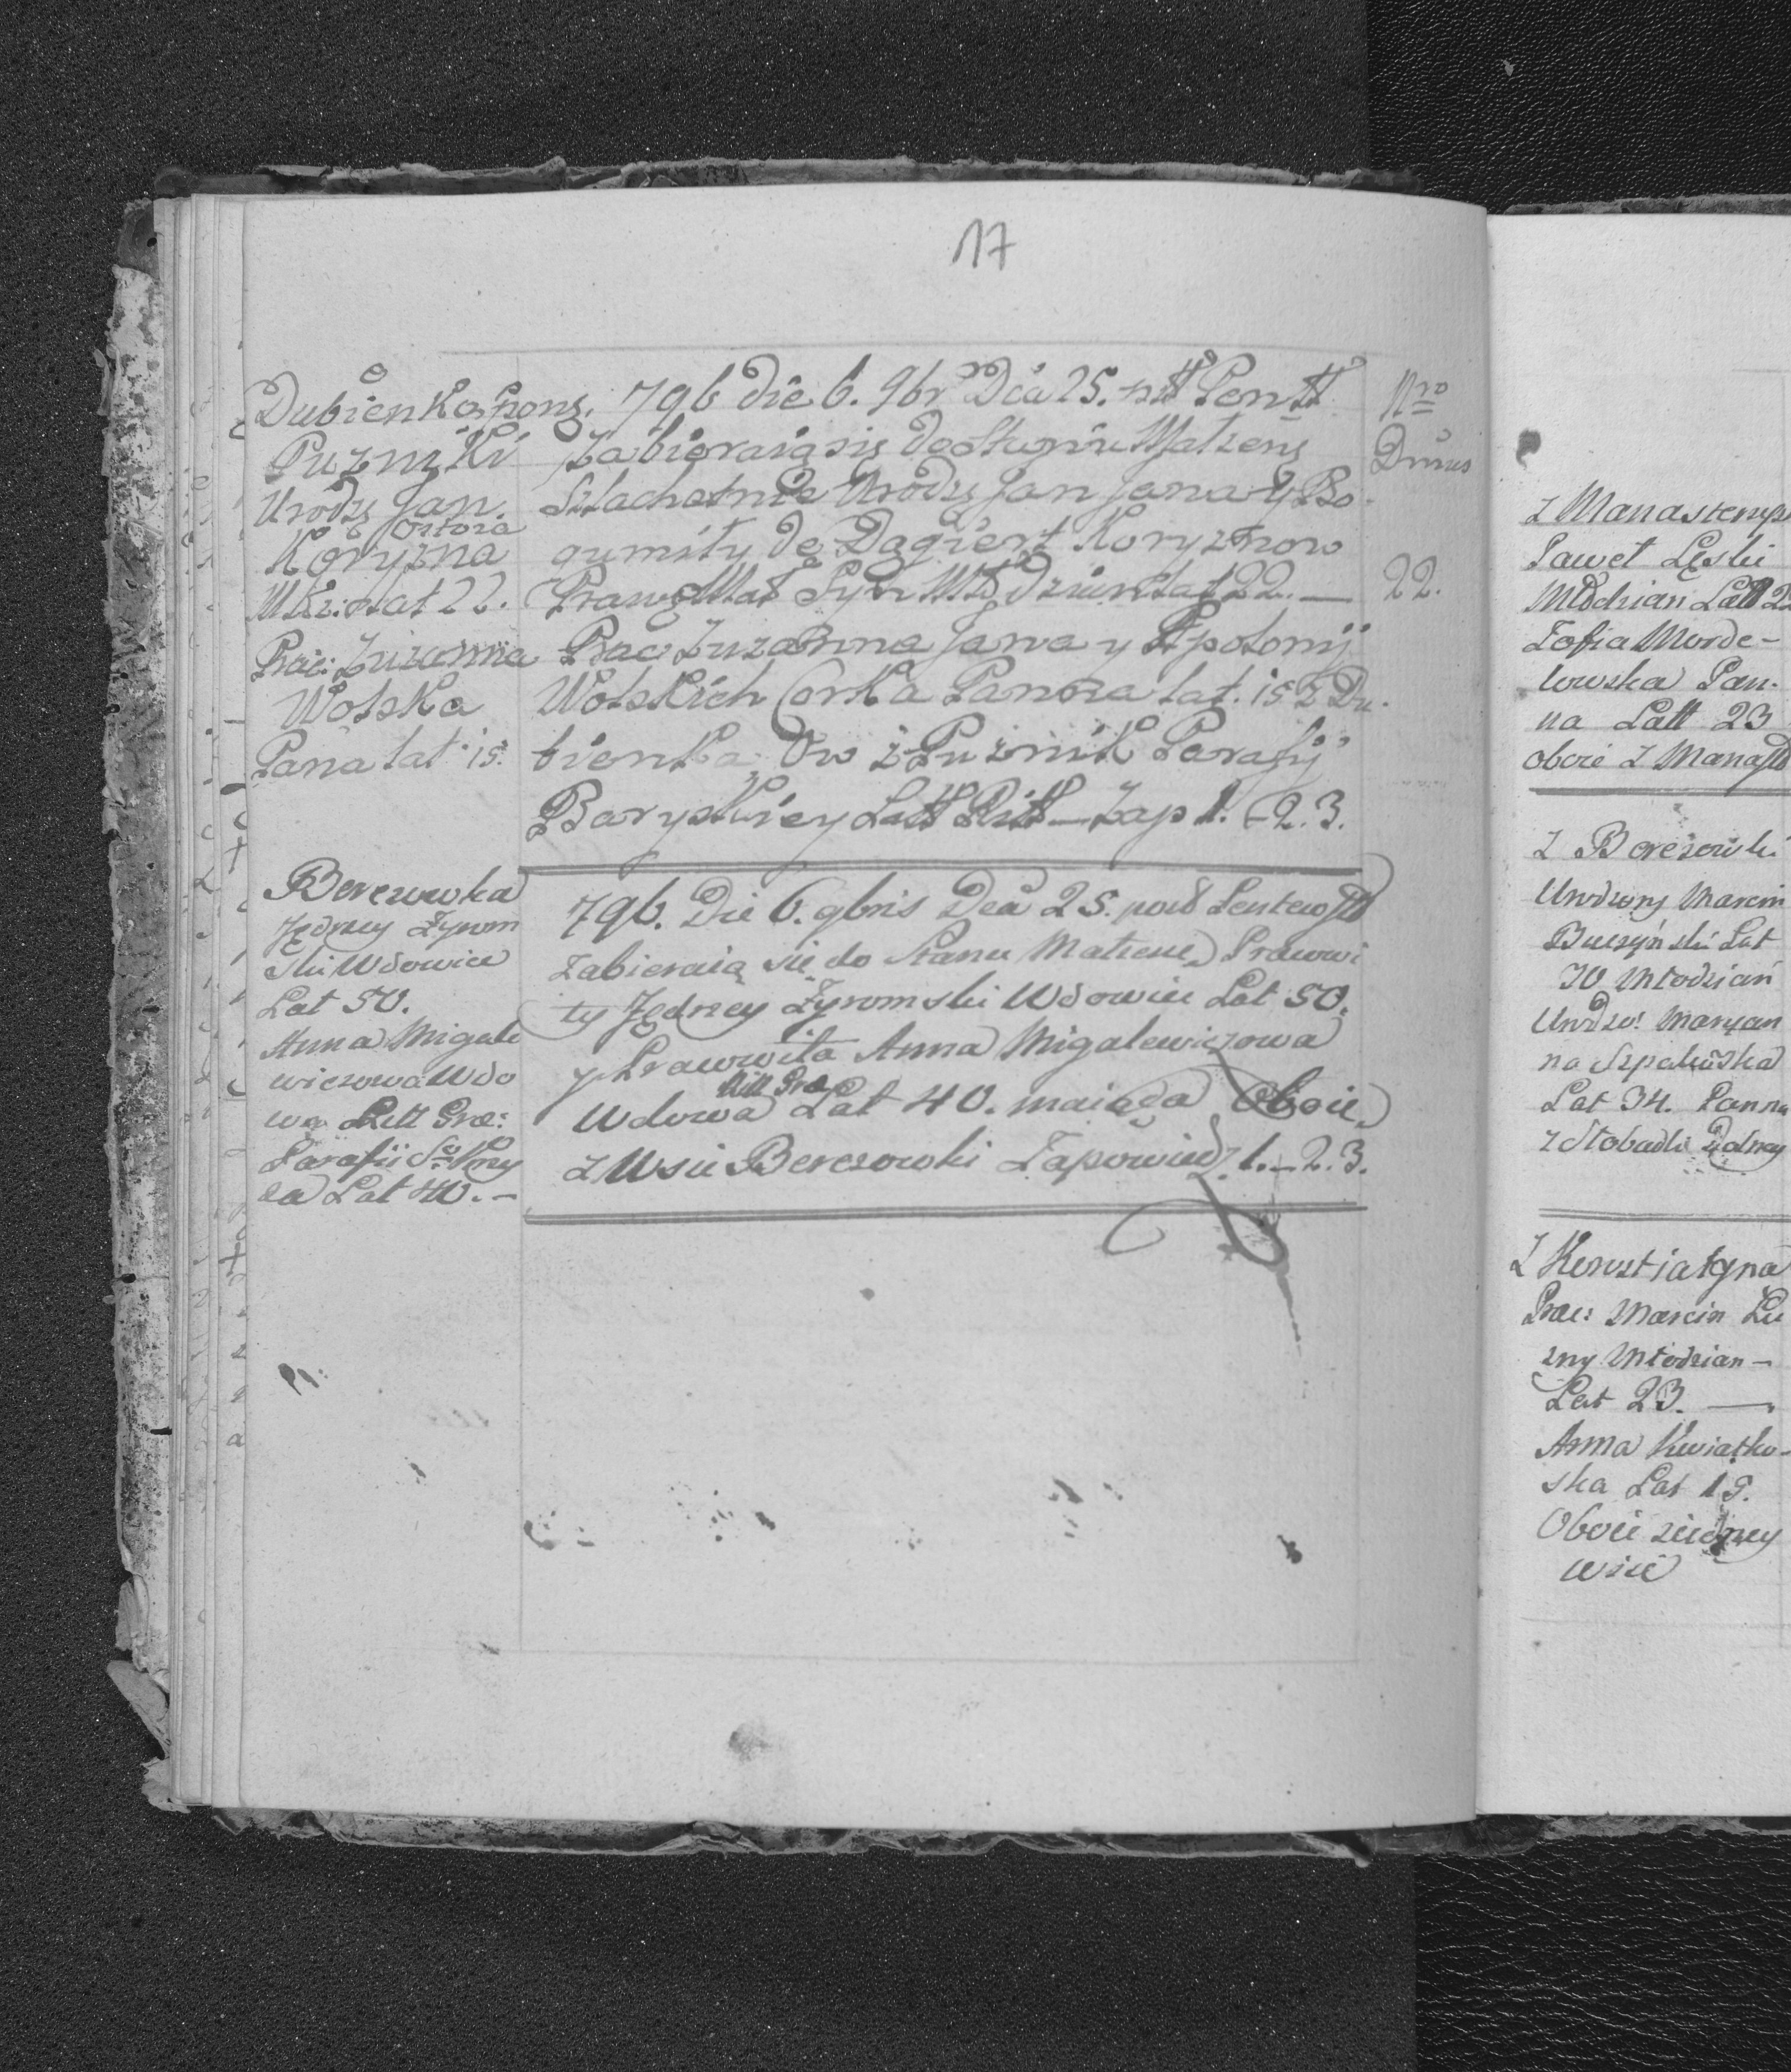 17
Dubienka
Puzniki
Urodz Jan
Ortoza
Koryzna
Mło: Lat 22.
Prac: Zuzanna
Wolska
Pana lat 15.
796 Die 6. 9br Dca 25. pst Pentt
Zabieraią się do Małzeń
Szlachetnie Urodz Jan Jana y Bo
gumiły de Koryznow
Praw Mał Syn Młodzian lat 22. —
Prac Zuzanna Jana y Apolonij
Wolskich Corka Panna lat. 15 z Du.
bienka Ow z Puznik Parafij
Baryskiey Latt Ritt — Zap 1. - 2. 3.
Nro
Dmus
22.
Berezowka
Jędrzey Zyrom
ski Wdowiec
Lat 50.
Anna Migale
wiczowa Wdo
wa Ritt Grae:
Parafii
Lat 40. —
796. Die 6. 9bris Dca 25. post Pentecost
zabieraią się do Stanu Małzens Prawowi
ty Jędrzey Zyromski Wdowiec Lat 50.
y Prawowita Anna Migalewiczowa
Ritt Grae
Wdowa Lat 40. maiąca Oboie
z Wsie Berezowki Zapowiedz 1. - 2. 3.
z Manasterzys
Paweł Leski
Młodzian Latt 2
Zofia Morde-
lowska Pan-
na Latt 23
oboie z Manast
z Berezowki
Urodzony Marcin
Buczyński Lat
30 Młodzian
Urodzo: Maryan
na Szpakowska
Lat 34. Panna
z Słobudki Dolney
z Kowustiatyna
Prac: Marcin Lu
zny Młodzian —
Lat 23. —
Anna Kwiatko-
ska Lat 19.
Oboie ziedney
wsie